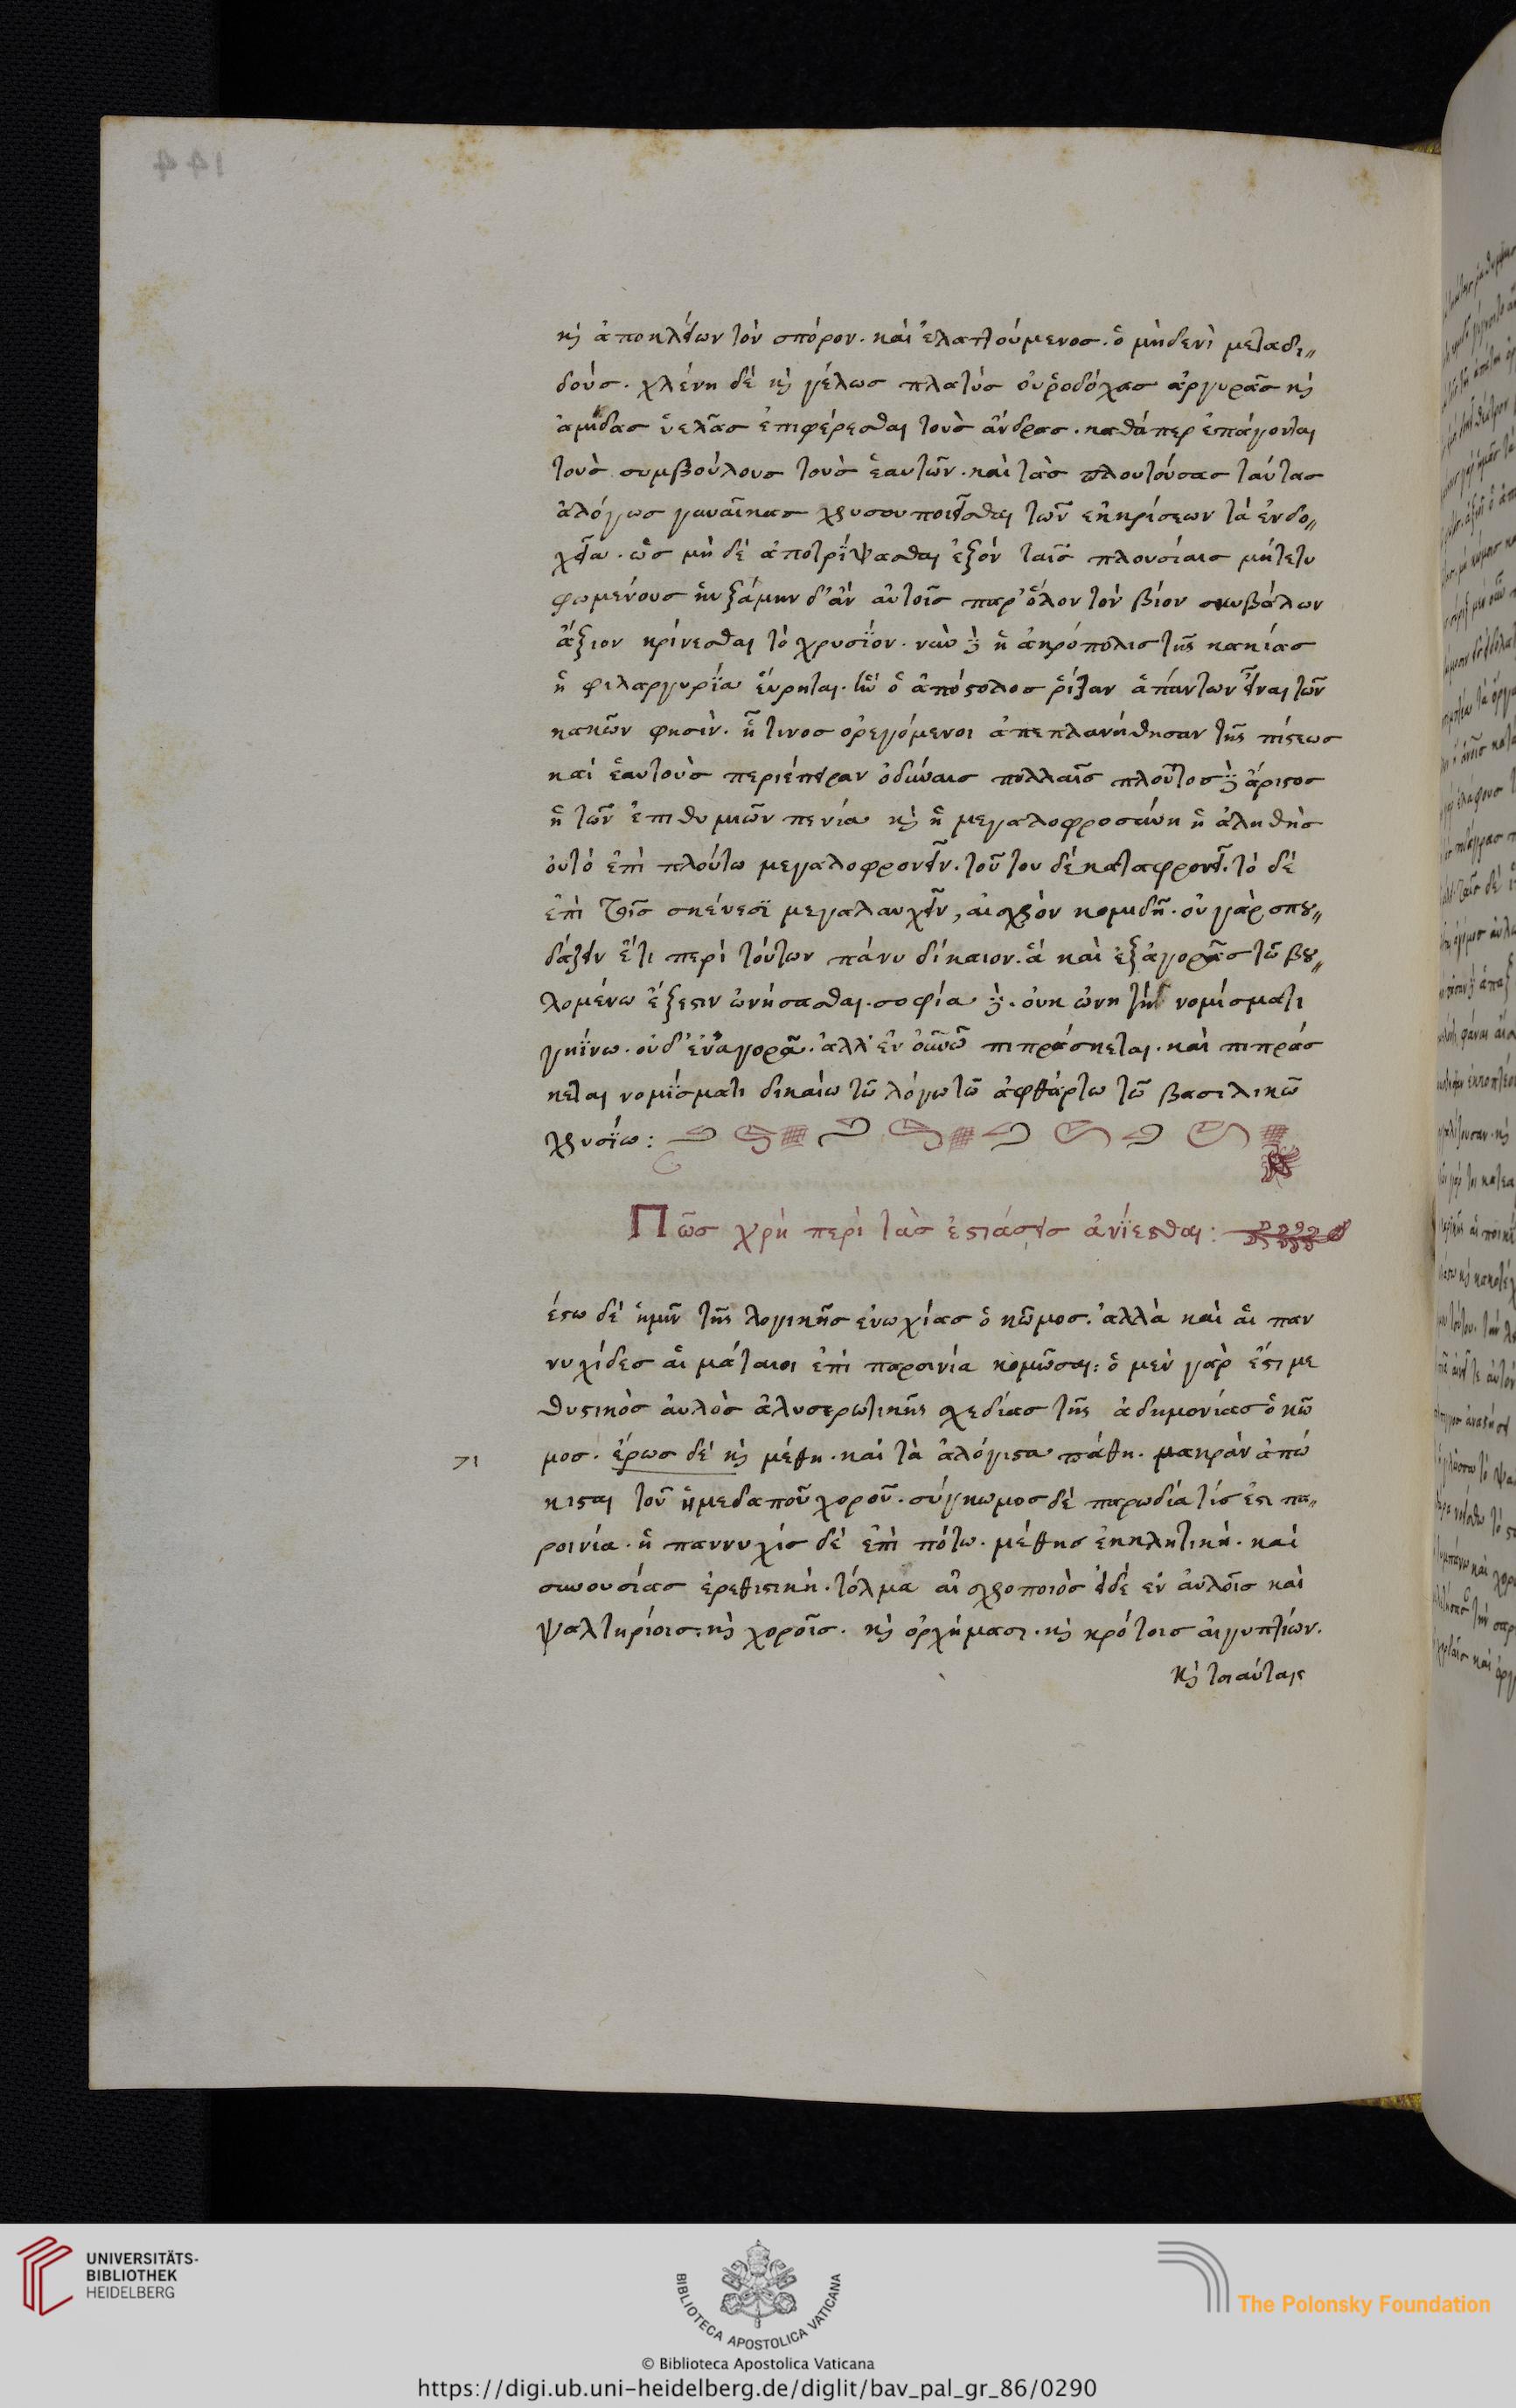 144
κὶ ἀποκλείων τὸν σπόρον. καὶ ἐλαττούμενοσ. ὁ μηδενὶ μεταδι„
δούσ. χλένη δὲ κὶ γέλωσ πλατὺσ οὐροδόχασ ἀργυρᾶσ κὶ
ἀμίδασ ὑελᾶσ ἐπιφέρεσθαι τοὺσ ἄνδρασ. καθάπερ ἐπάγονται
τοὺσ συμβούλουσ τοὺσ ἑαυτῶν. καὶ τὰσ πλουτούσασ ταύτασ
ἀλόγωσ γυναῖκασ χρυσουποιεῖσθαι τῶν ἐκκρίσεων τὰ ἐνδο„
χεῖα. ὡσ μὴ δὲ ἀποτρίψασθαι ἐξὸν ταῖσ πλουσίαισ μήτετυ
φωμένουσ ηὐξάμην δ' ἂν αὐτοῖσ παρ' ὅλον τὸν βίον σκυβάλων
ἄξιον κρίνεσθαι τὸ χρυσίον. νῦν δὲ ἡ ἀκρόπολισ τῆς κακίασ
ἡ φιλαργυρία εὕρηται. ἣν ὁ ἀπόστολοσ ῥίζαν ἁπάντων εἶναι τῶν
κακῶν φησὶν. ἧ τινοσ ὀρεγόμενοι ἀπεπλανήθησαν τῆς πίστεωσ
καὶ ἑαυτοὺσ περιέπειραν ὀδύναισ πολλαῖσ πλοῦτοσ δὲ ἄριστοσ
ἡ τῶν ἐπιθυμιῶν πενία κὶ ἡ μεγαλοφροσύνη ἡ ἀληθὴσ
οὐτὸ ἐπὶ πλούτω μεγαλοφρονεῖν. τούτου δὲ καταφρονεῖ. τὸ δὲ
ἐπὶ τοῖσ σκέυεσϊ μεγαλαυχεῖν, αἰσχρὸν κομιδῆ. οὐ γὰρ σπου„
δάζειν ἔτι περὶ τούτων πάνυ δίκαιον. ἃ καὶ ἐξ ἀγορᾶσ τῶ βου„
λομένω ἔξεστιν ὠνήσασθαι. σοφία δὲ. οὐκ ὠνητὴ νομίσματι
γηίνω. οὐδ' ἐν ἀγορᾶ. ἀλλ' ἐν οὐνῶ πιπράσκεται. καὶ πιπράσ
κεται νομίσματι δικαίω τῶ λόγω τῶ ἀφθάρτω τῶ βασιλικῶ
χρυσίω:
Πῶσ χρὴ περὶ τὰσ ἑστιάσεισ ἀνίεσθαι:
έστω δὲ ἡμῖν τῆς λογικῆσ εὐωχίασ ὁ κῶμοσ. ἀλλὰ καὶ αἱ παν
νυχίδεσ αἱ μάταιοι ἐπὶ παροινία κομῶσαι: ὁ μὲν γὰρ ἔστι με
θυστικὸσ ἀυλὸσ ἀλυσερωτικῆς σχεδίασ τῆς ἀδημονίασ ὁ κῶ
μοσ. ἔρωσ δὲ κὶ μέθη. καὶ τὰ ἀλόγιστα πάθη. μακρὰν ἀπώ
κισται τοῦ ἡμεδαποῦ χοροῦ. σύγκωμοσ δὲ παρωδία τίσ ἐστι πα„
ροινία. ἡ παννυχὶσ δὲ ἐπὶ πότω. μέθησ ἐκκλητικὴ. καὶ
συνουσίασ ἐρεθιστικὴ. τόλμα αἰσχροποιὸσ εἰδὲ ἐν ἀυλοῖσ καὶ
ψαλτηρίοισ. κὶ χοροῖσ. κὶ ὀρχήμασι. κὶ κρότοισ ἀιγυπτίων.
κὶ τοιαύταις
UNIVERSITÄTS-
BIBLIOTHEK
HEIDELBERG
BIBLIOTECA APOSTOLICA VATICANA
The Polonsky Foundation
© Biblioteca Apostolica Vaticana
https://digi.ub.uni-heidelberg.de/diglit/bav_pal_gr_86/0290